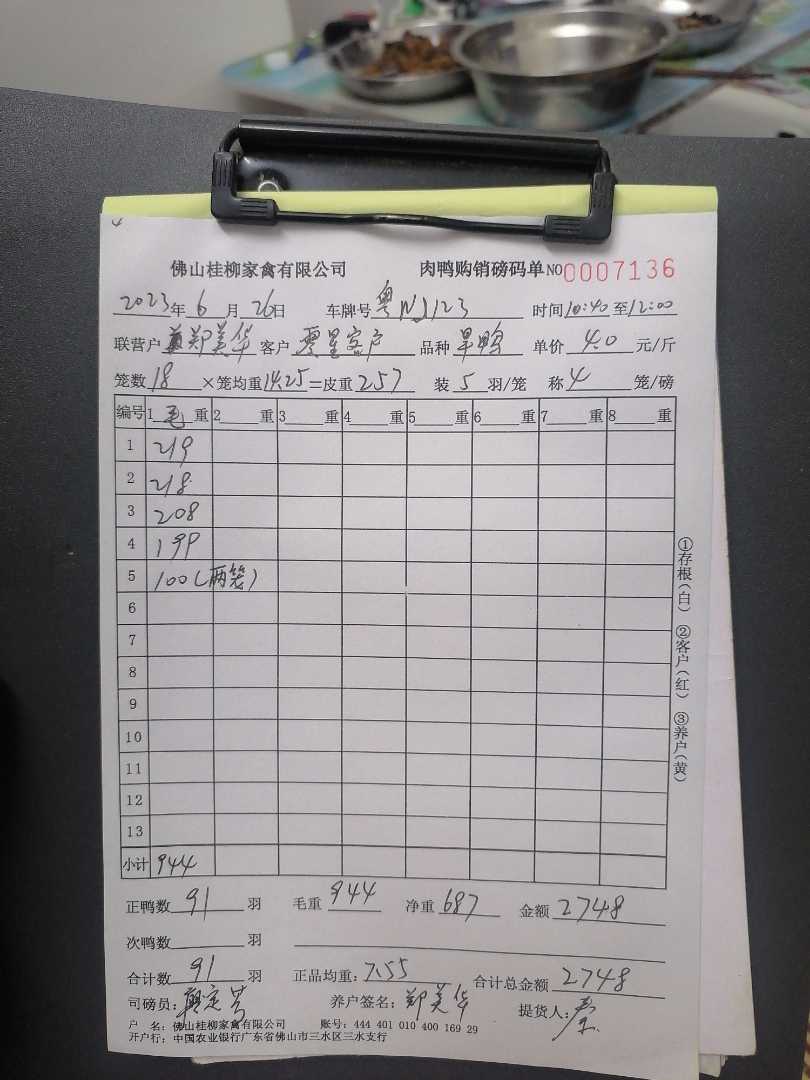 佛山桂柳家禽有限公司 肉鸭购销磅码单 NO 0007136
2023年 6 月 26日 车牌号 粤NJ123 时间10:40至12:00
联营户 郑美华 客户 零星客户 品种 旱鸭 单价 4.0 元/斤
笼数 18 ×笼均重14.25=皮重 257 装 5 羽/笼 称 4 笼/磅
编号 1 毛 重 2 重 3 重 4 重 5 重 6 重 7 重 8 重
1 219
2 218
3 208
4 199
5 100(两笼)
6
7
8
9
10
11
12
13
小计 944
①存根(白) ②客户(红) ③养户(黄)
正鸭数 91 羽 毛重 944 净重 687 金额 2748
次鸭数 羽
合计数 91 羽 正品均重: 7.55 合计总金额 2748
司磅员: 养户签名: 郑美华 提货人:
户 名: 佛山桂柳家禽有限公司 账号: 444 401 010 400 169 29
开户行: 中国农业银行广东省佛山市三水区三水支行